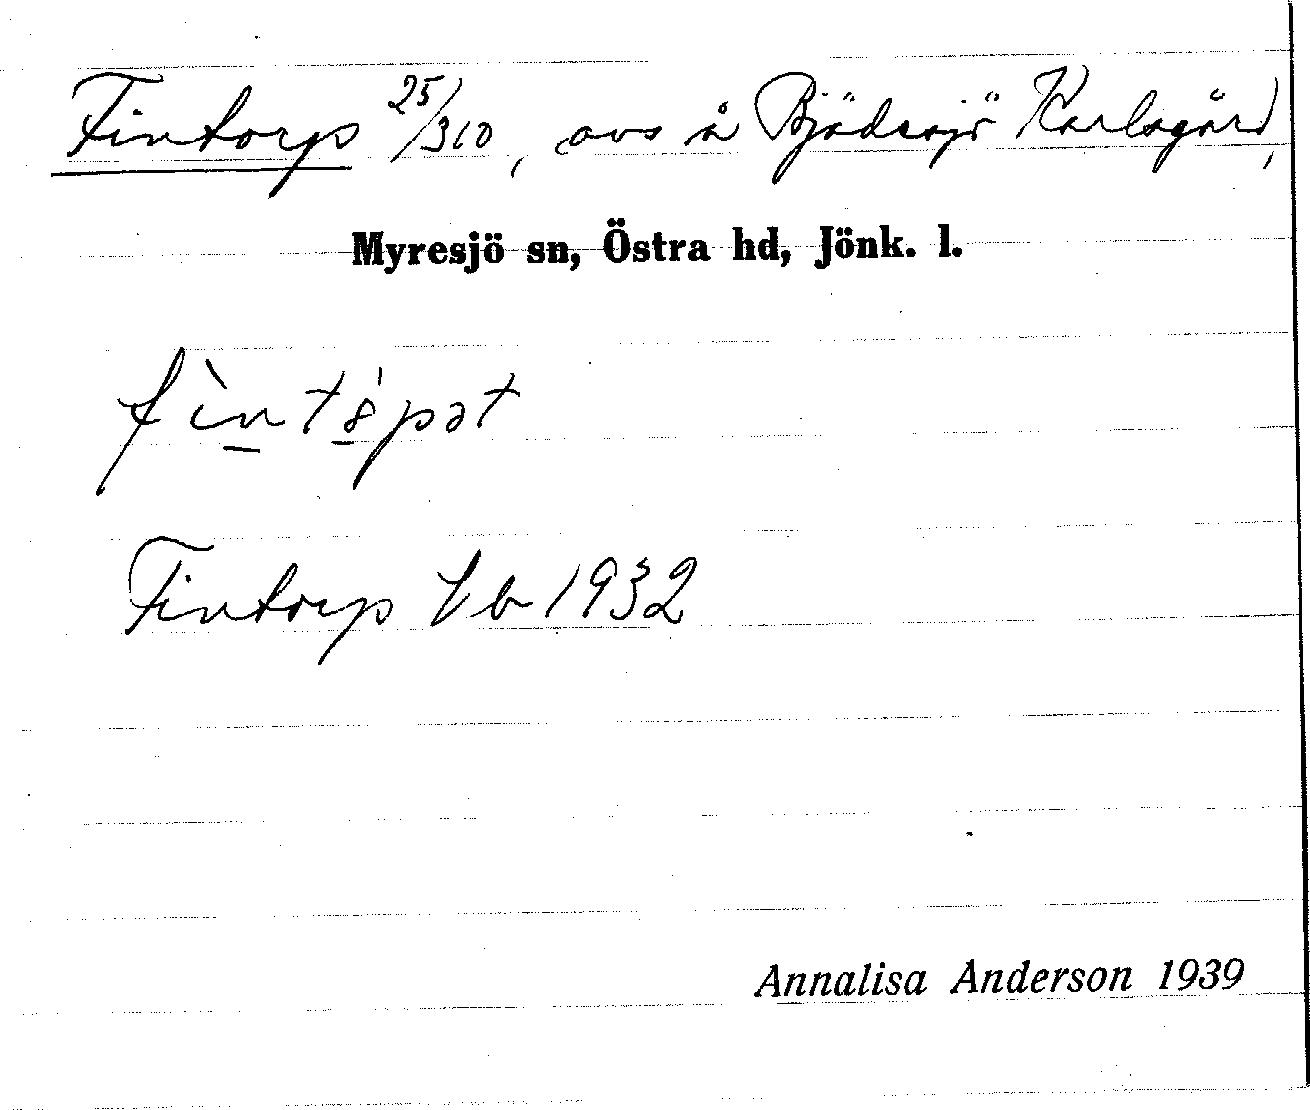 Fintorp 25/310, avs å Bjädesjö Karlsgård,
Myresjö sn, Östra hd, Jönk. l.
Fintorp Jb 1932
Annalisa Anderson 1939